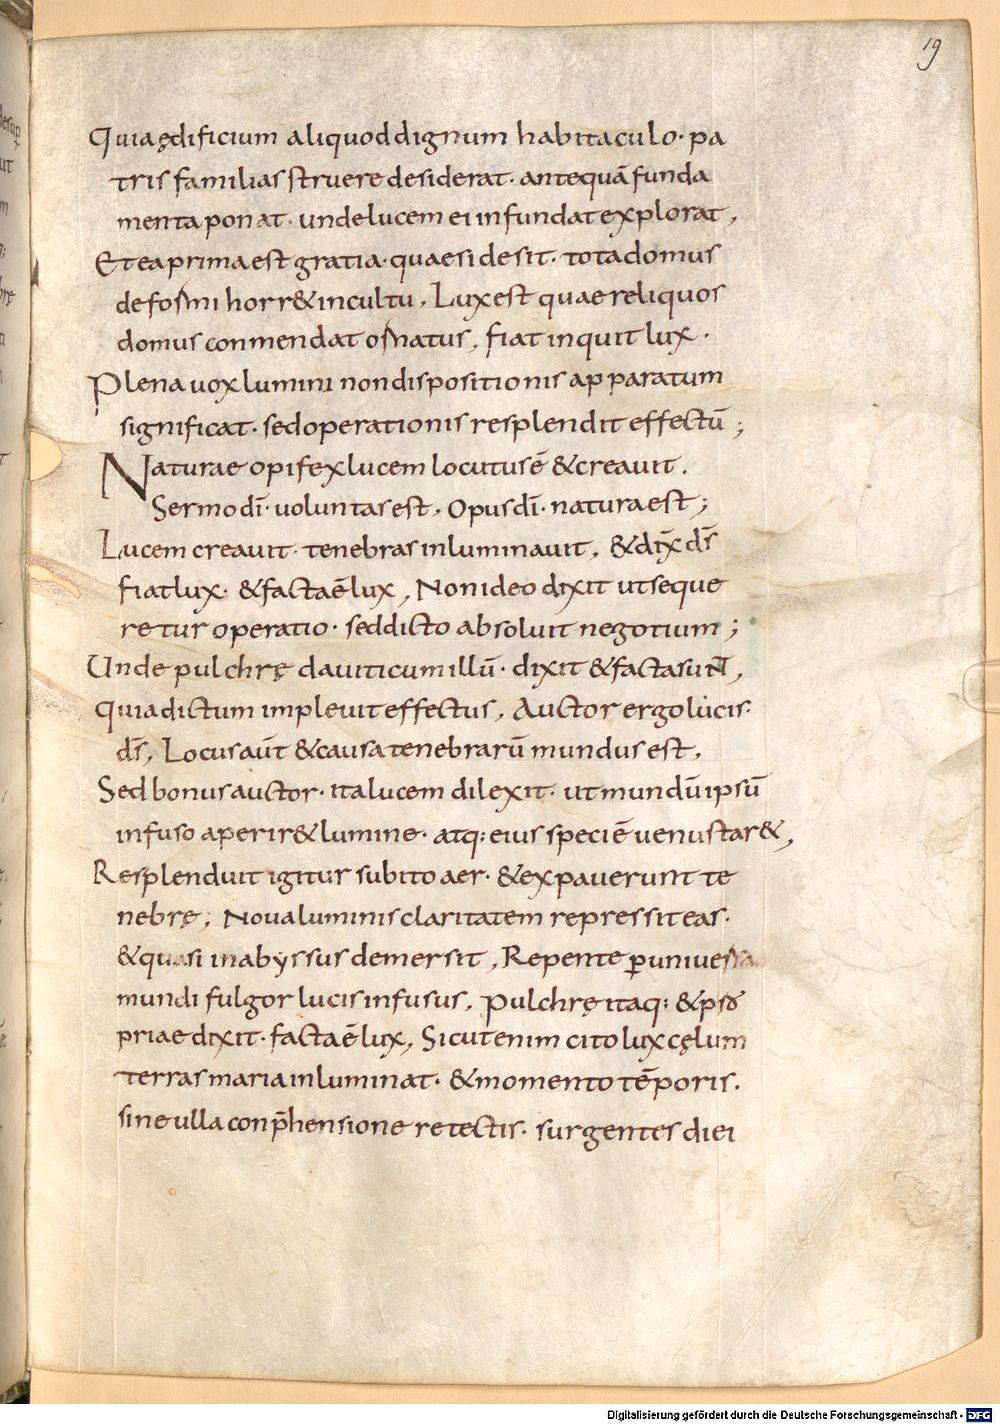 19
Quia ędificium aliquod dignum habitaculo· pa
tris familias struere desiderat· antequā funda
menta ponat· unde lucem ei infundat explorat,
Et ea prima est gratia· quae si desit· tota domus
deformi horr& incultu, Lux est quae reliquos
domus conmendat ornatus, fiat inquit lux·
Plena uox lumini non dispositionis apparatum
significat· sed operationis resplendit effectū;
Naturae opifex lucem locutus ē & creauit.
Sermo dī· uoluntas est, Opus dī· natura est;
Lucem creauit· tenebras inluminauit, & dix̄ ds̄
fiat lux· & facta ē lux, Non ideo dixit ut seque
retur operatio· sed dicto absoluit negotium;
Unde pulchrę dauiticum illū· dixit & facta sunt,
Quia dictum impleuit effectus, Auctor ergo lucis·
ds̄, Locus aūt & causa tenebrarū mundus est,
Sed bonus auctor· ita lucem dilexit· ut mundū ipsū
infuso aperir& lumine· atq: eius speciē uenustar&,
Resplenduit igitur subito aer· & expauerunt te
nebrę; Noua luminis claritatem repressit eas·
& quasi in abyssus demersit, Repente ꝑ uniuersa
mundi fulgor lucis infusus, Pulchrę itaq: & pro
priae dixit· facta ē lux, Sicut enim cito lux cęlum
terras maria inluminat· & momento tēporis·
sine ulla conp̄hensione retectis· surgentes diei
Digitalisierung gefördert durch die Deutsche Forschungsgemeinschaft - DFG